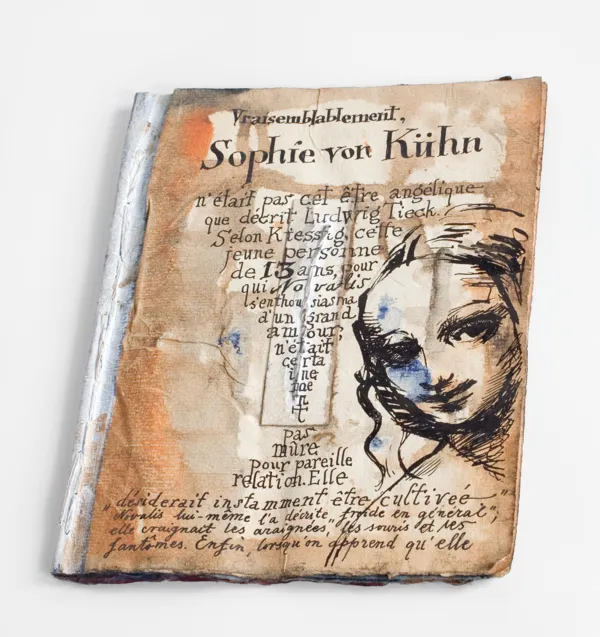 Vraisemblablement,
Sophie von Kühn
n'était pas cet être angélique
que décrit Ludwig Tieck.
Selon Kiessig, cette
jeune personne
de 13 ans, pour
qui Novalis
s'enthousiasma
d'un grand
amour,
n'était
certa
ine
me
n
t
pas
mûre
pour pareille
relation. Elle
„désiderait instamment être cultiveé"
Novalis lui-même l'a décrite „froide en général",
elle craignait les araignées, les souris et les
fantômes. Enfin, lorsqu'on apprend qu'elle